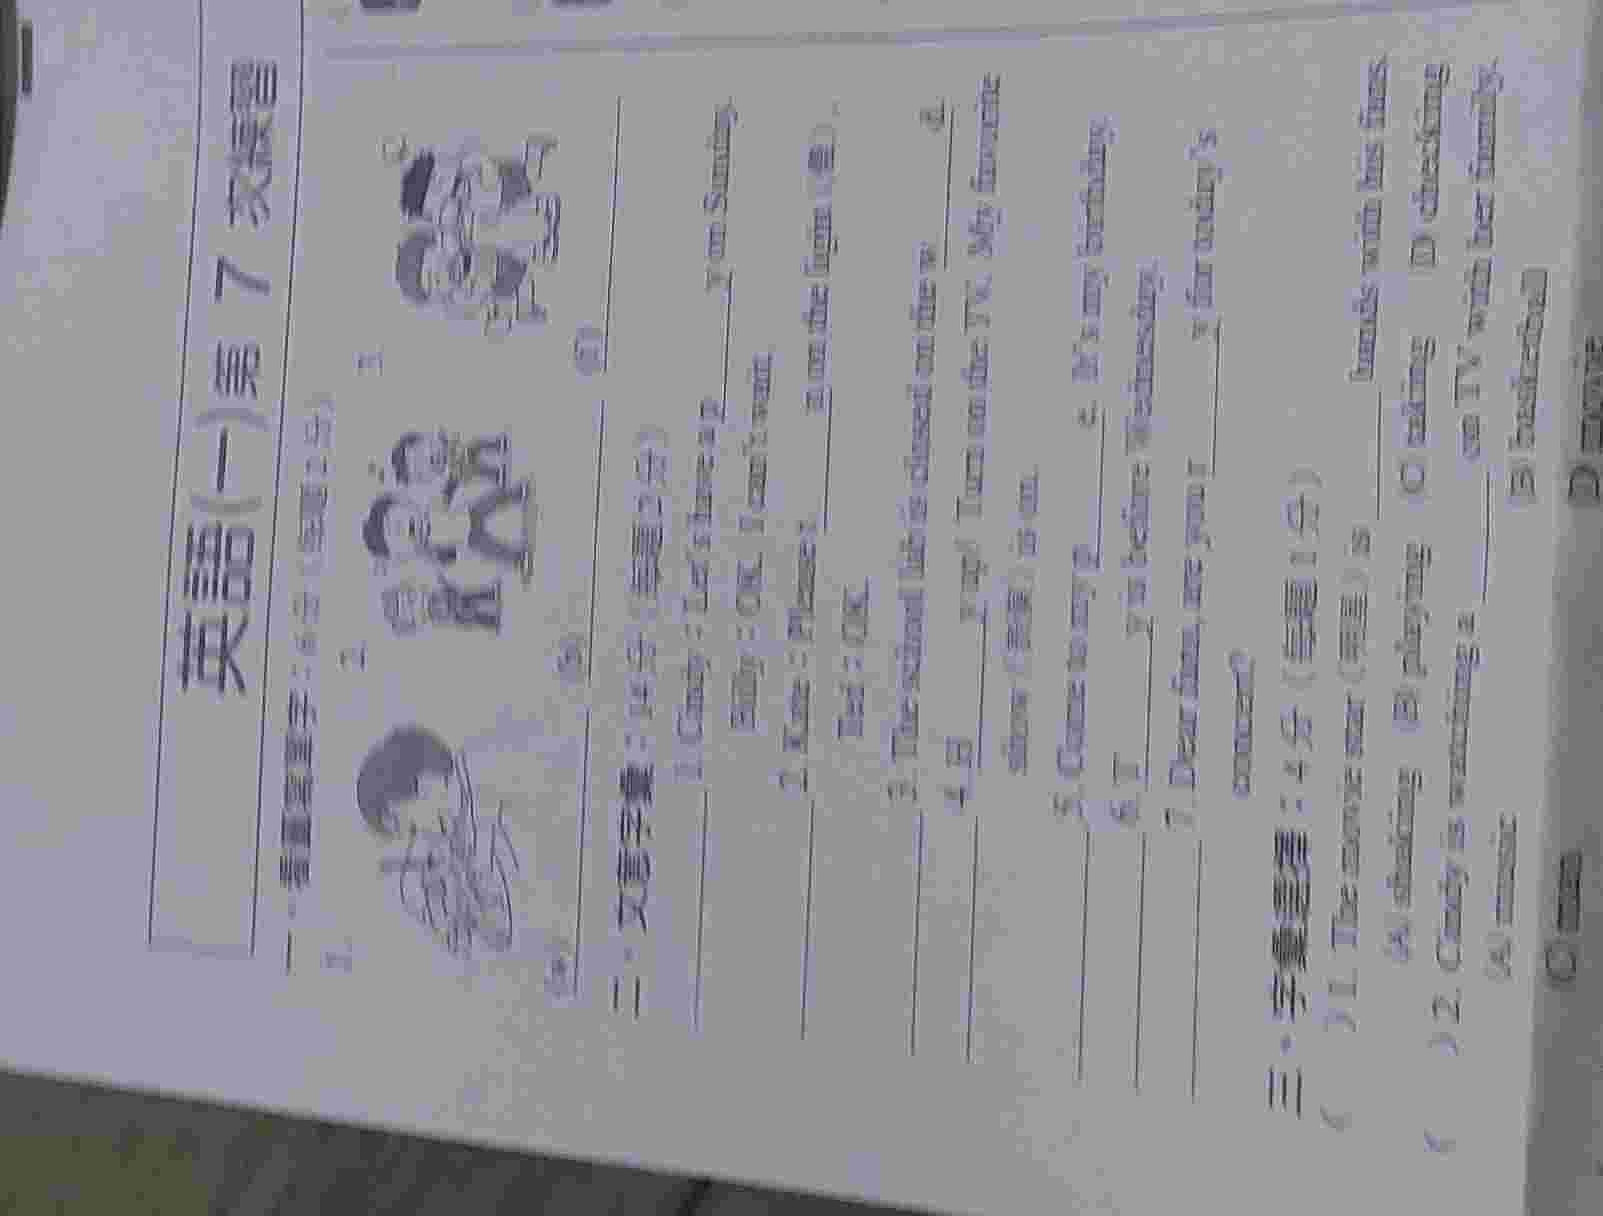 英語(一)第 7 次段考
一、看圖填單字：6分（每題2分）
1.
2.
3.
二、文意字彙：14分（每題2分）
1. Cindy：Let's have a p y on Sunday.
Billy：OK. I can't wait.
2. Kate：Please t n on the light（燈）.
Ted：OK.
3. The school is closed on the w d.
4. H y up! Turn on the TV. My favorite
show（節目）is on.
5. Come to my p e. It's my birthday.
6. T y is before Wednesday.
7. Dear fans, are you r y for today's
concert?
三、字彙選擇：4分（每題1分）
( ) 1. The movie star（明星）is hands with his fans.
(A) shaking (B) playing (C) taking (D) checking
( ) 2. Cindy is watching a on TV with her family.
(A) music (B) basketball
(C) (D)